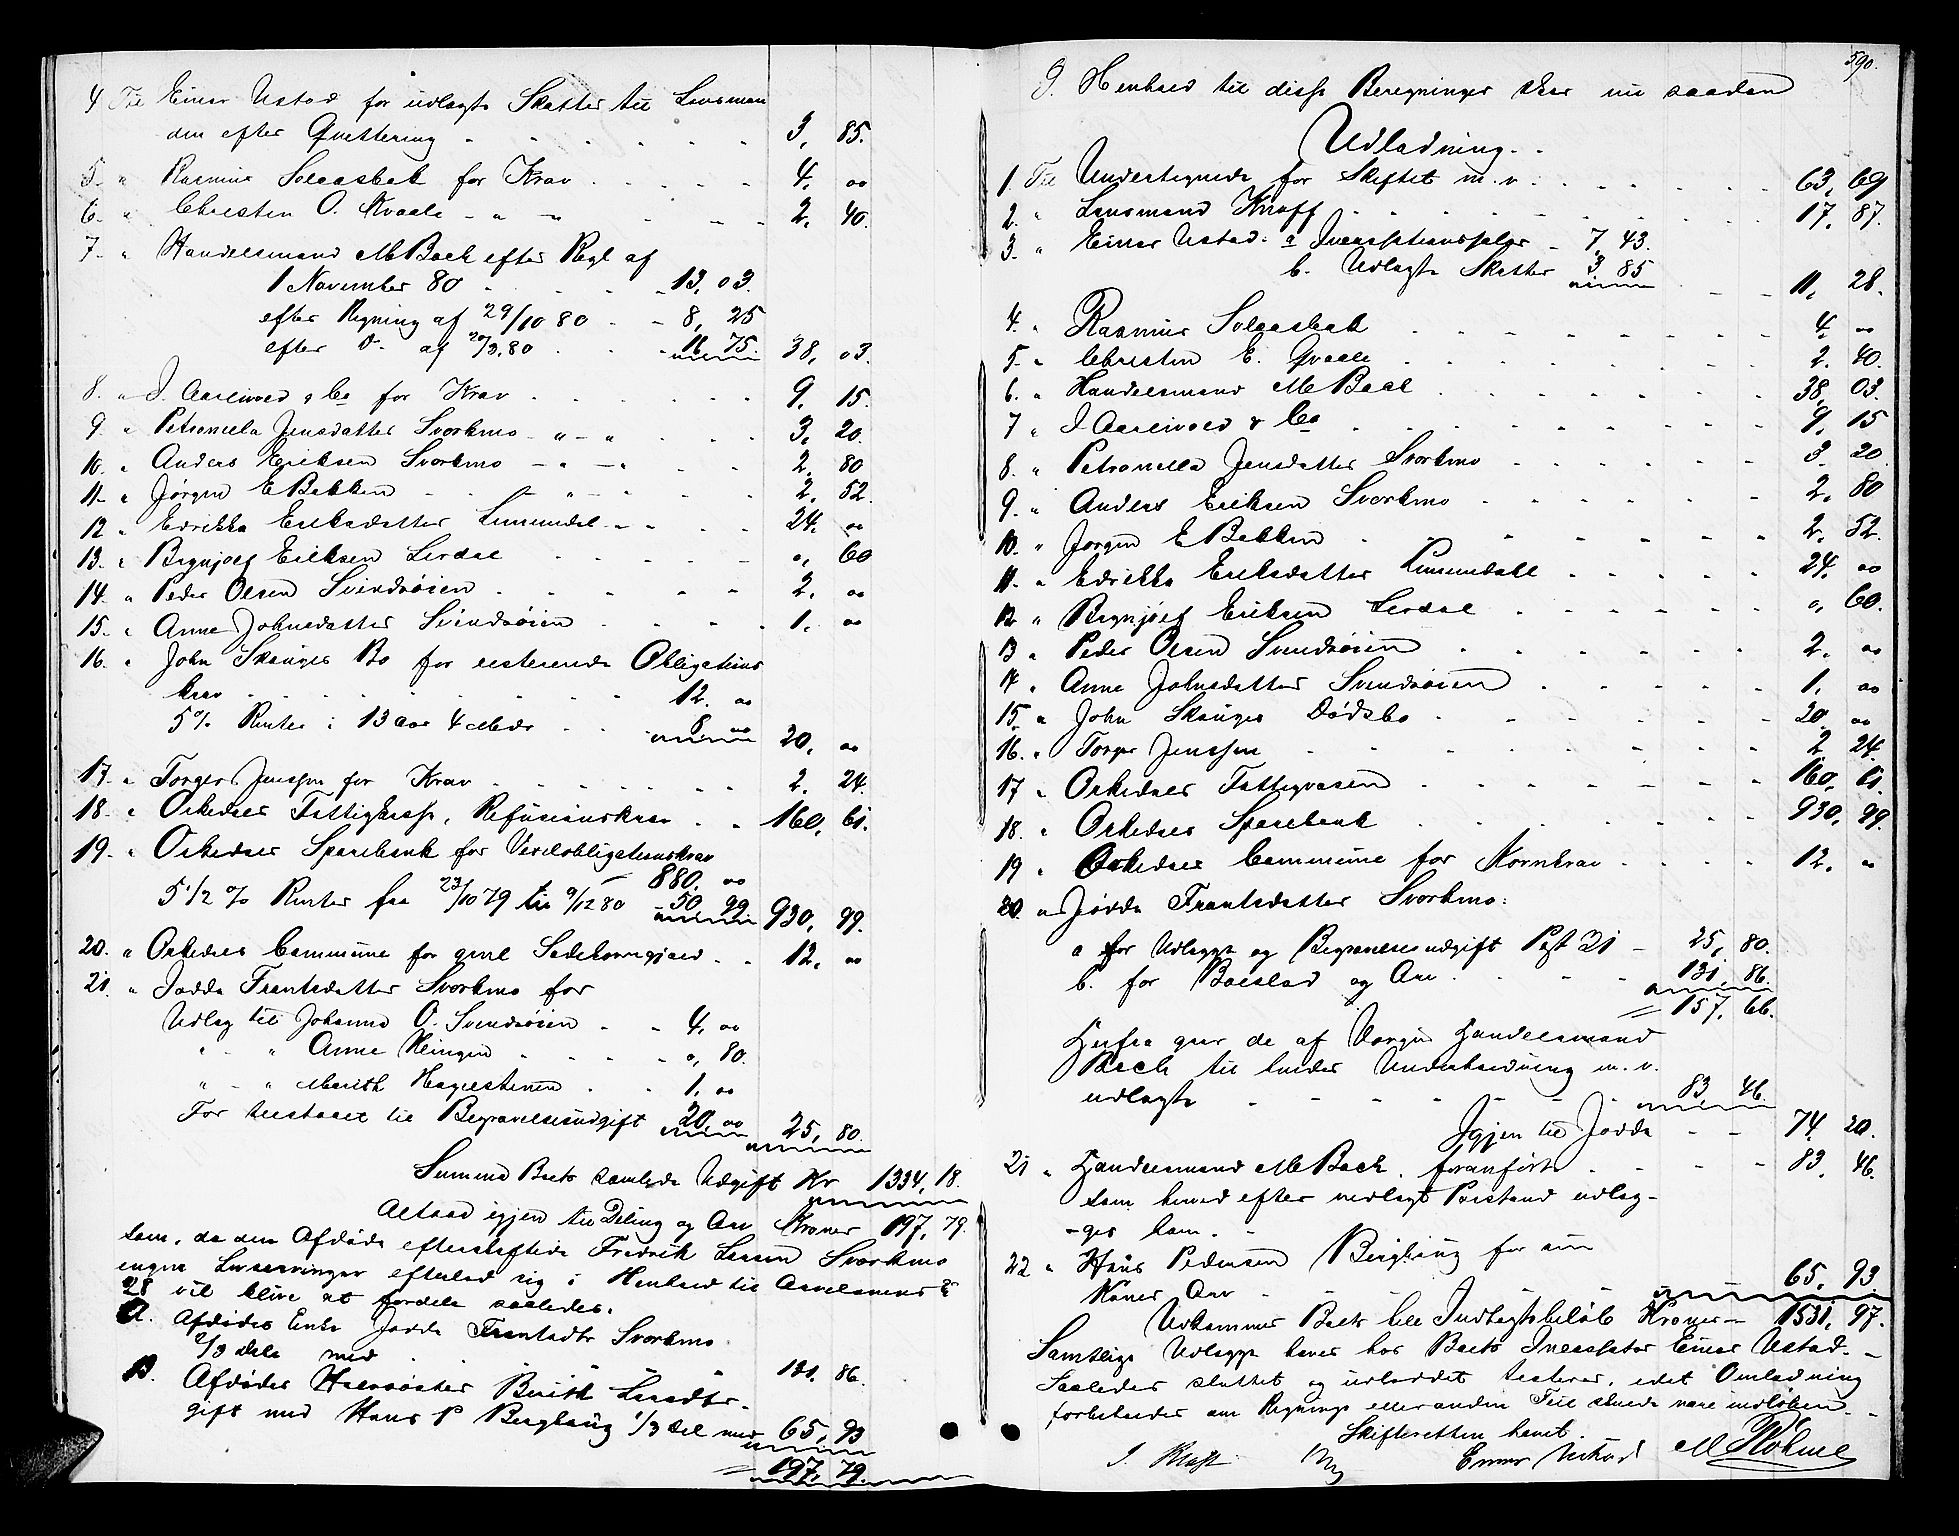 4 Til Einar Ustad for udlagte Skatter til Lensman
den efter Qvittering 3, 85.
5. " Rasmus Solaasbak for Krav 4, oo
6. " Christen O. Kvaale - " - 2, 40.
7. " Handelsmand M Bach efter Regl af
1 November 80 13, 03.
efter Regning af 29/10 80 8, 25
efter Do af 20/3.80 16 75. 38, 03.
8. " J. Aarlivold & Co for Krav 9, 15.
9. " Petronella Jensdatter Svorkmo - " - " 3, 20.
10. " Anders Eriksen Svorkmo - " - " 2, 80
11. " Jørgen E Bakken - " - " 2, 52.
12 " Edrikka Eriksdatter Lumundal - " 24, oo
13. " Brynjolf Eriksen Lerdal ", 60
14. " Peder Olsen Svindsøien 2, oo
15. " Anne Johnsdatter Svindsøien 1, oo
16. " John Skauges Bo for resterende Obligations
krav 12. oo
5% Renter i 13 aar 4 Mdr 8 oo 20, oo
17. " Torger Jenssen for Krav 2, 24.
18. " Orkedals Fattigkasse, Refusionskrav 160, 61.
19. " Orkedals Sparebank for Vexelobligationskrav
880, oo
5 1/2 % Renter fra 23/10 79 til 9/12 80 50 99 930, 99.
20. " Orkedals Commune for gml Sædekorngjæld 12, oo
21. " Jødda Frantsdatter Svorkmo for
Udlæg til Johanna O. Svindsøien 4, oo
" - " Anne Klingen ", 80.
" - " Marith Hagelstenen 1, oo
For tilstaaet til Begravelsesudgift 20, oo 25, 80.
Summa Boets samlede Udgift Kr 1334, 18.
Altsaa igjen til Deling og Arv Kroner 197, 79.
som, da den Afdøde efterskiftede Fredrik Larsen Svorkmo
ingen Livsarvinger efterlod sig i Henhold til Arvelovens §
28 vil blive at fordele saaledes.
A. Afdødes Enke Jødda Frantsdtr Svorkmo
2/3 dele med 131, 86.
B. Afdødes Halvsøster Berith Larsdtr.
gift med Hans P Berglaug 1/3 del med 65, 93
= 197, 79.
590.
I Henhold til disse Beregninger sker nu saadan
Udlodning.
1. Til Undertegnede for Skiftet m. v. 63, 69
2. " Lensmand Krøff 17, 87.
3. " Einar Ustad: a Incassationssalær 7, 43.
b. Udlagte Skatter 3 85 11, 28.
4. " Rasmus Solaasbak 4, oo
5. " Christen E. Qvaale 2. 40.
6. " Handelsmand M Bach 38, 03.
7 " J Aarlivold & Co 9, 15
8. " Petronella Jensdatter Svorkmo 3. 20.
9. " Anders Eriksen Svorkmo 2, 80
10. " Jørgen E Bakken 2, 52.
11. " Edrikka Eriksdatter Lumundall 24, oo
12 " Brynjolf Eriksen Lerdal ", 60.
13 " Peder Olsen Svindsøien 2, oo
14 " Anne Johnsdatter Svindsøien 1, oo
15. " John Skauges Dødsbo 20, oo
16. " Torger Jenssen 2 24.
17 " Orkedals Fattigvæsen 160, 61.
18. " Orkedals Sparebank 930, 99.
19 " Orkedals Commune for Kornkrav 12, "
20. " Jødda Frantsdatter Svorkmo:
a for Udlægge og Begravelsesudgift Post 21 25, 80.
b. for Boeslod og Arv 131, 86.
= 157, 66.
Herfra gaar de af Værgen Handelsmand
Bach til hendes Underholdning m. v.
udlagte 83, 46.
Igjen til Jødda 74, 20.
21 " Handelsmand M Bach foranførte 83, 46.
som hvad efter vedlagt Paastand udlæg-
ges ham.
22 " Hans Pedersen Berglaug for sin
Kones Arv 65, 93.
Udkommer Boets hele Indtægtsbeløb Kroner 1531, 97.
Samtlige Udlægge haves hos Boets Incassator Einar Ustad.
Saaledes sluttet og udloddet testeres, idet Omlodning
forbeholdes om Regnings eller anden Feil skulde være indløben.
Skifteretten hævet.
Einar Ustad M Holme